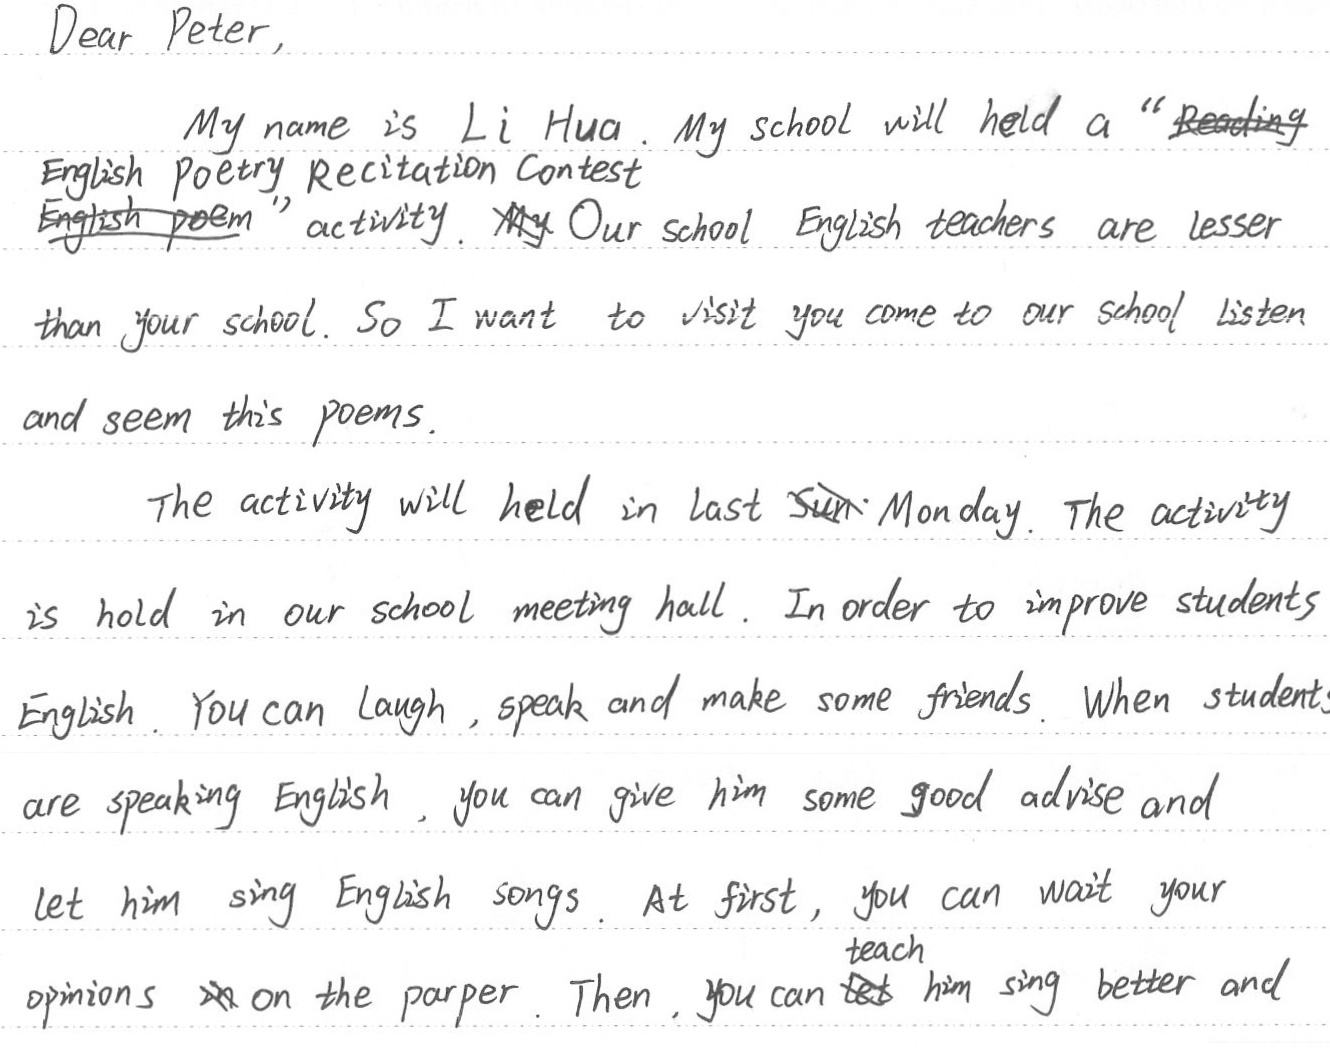 Dear Peter,
My name is Li Hua. My school will held a "Reading
English Poetry Recitation Contest
English poem" activity. My Our school English teachers are lesser
than your school. So I want to visit you come to our school listen
and seem this poems.
The activity will held in last Sun Monday. The activity
is hold in our school meeting hall. In order to improve students
English. You can laugh, speak and make some friends. When students
are speaking English, you can give him some good advise and
let him sing English songs. At first, you can wait your
teach
opinions in on the parper. Then, you can let him sing better and